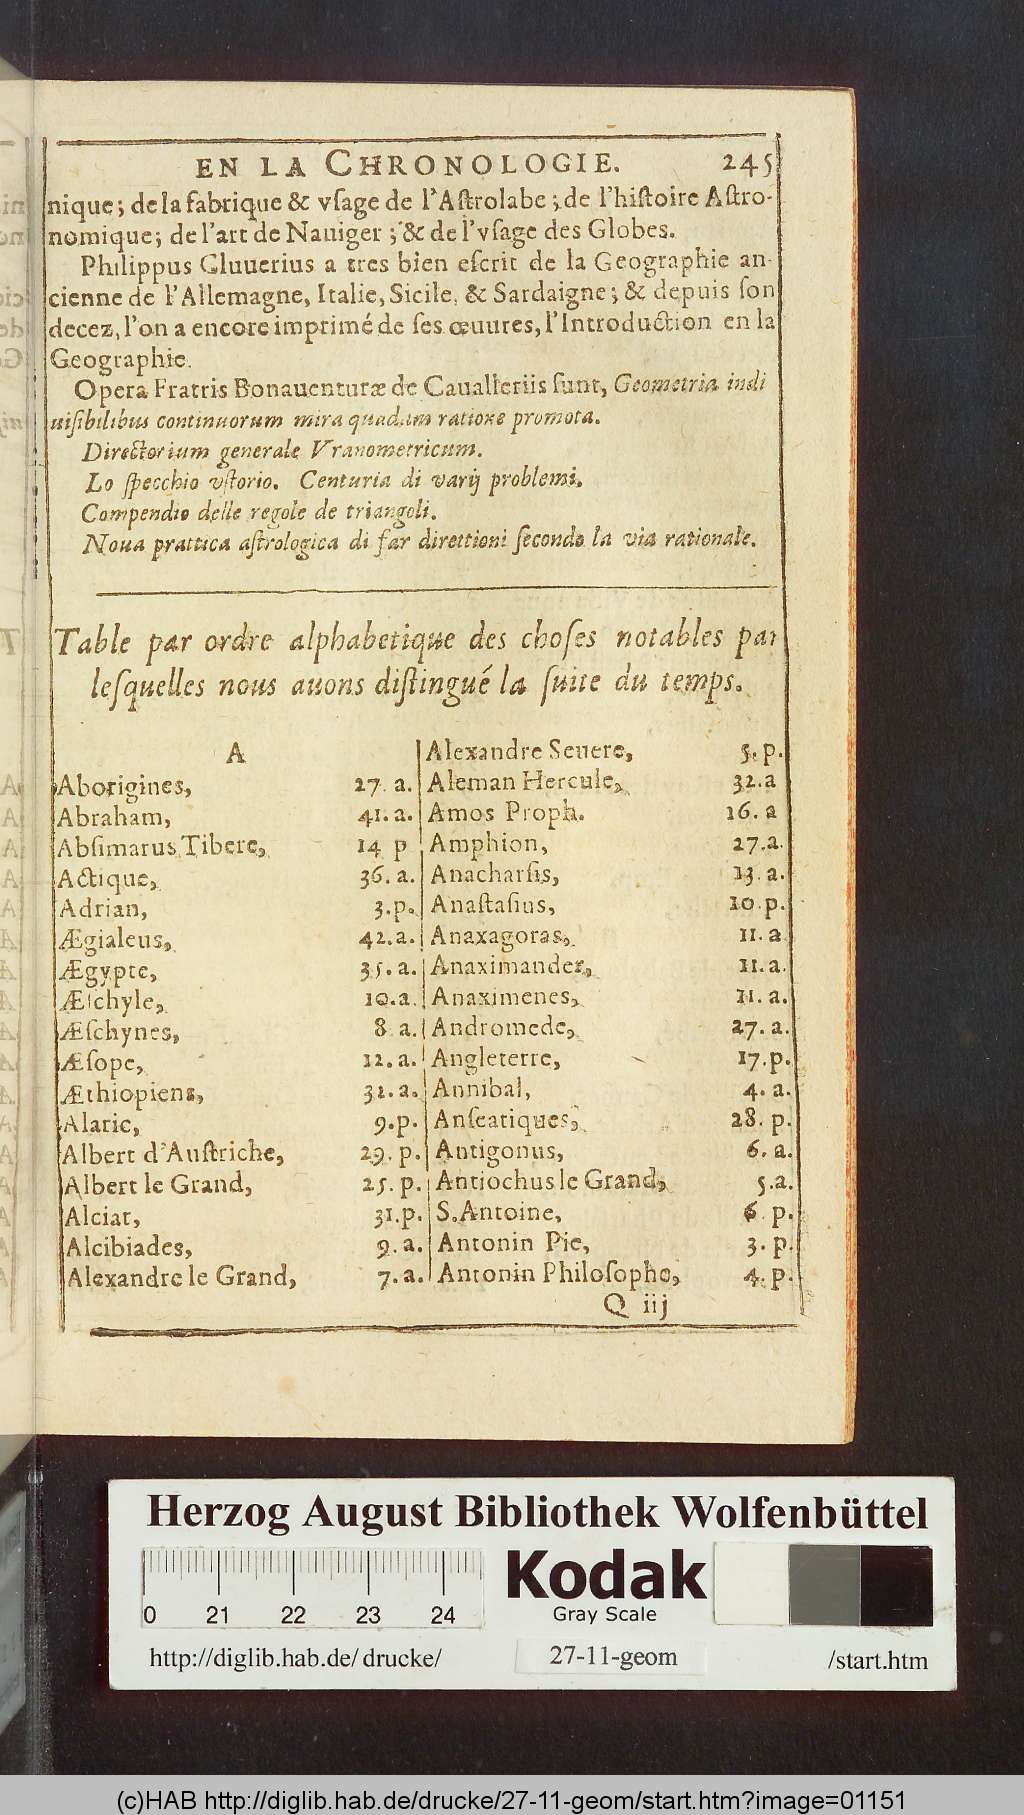 EN LA CHRONOLOGIE. 245
nique; de la fabrique & vſage de l'Aſtrolabe; de l'hiſtoire Aſtro-
nomique; de l'art de Nauiger; & de l'vſage des Globes.
Philippus Cluuerius a tres bien eſcrit de la Geographie an-
cienne de l'Allemagne, Italie, Sicile, & Sardaigne; & depuis ſon
decez, l'on a encore imprimé de ſes œuures, l'Introduction en la
Geographie.
Opera Fratris Bonauenturæ de Caualleriis ſunt, Geometria indi
uiſibilibus continuorum mira quadam ratione promota.
Directorium generale Vranometricum.
Lo ſpecchio vſtorio. Centuria di varij problemi.
Compendio delle regole de triangoli.
Noua prattica aſtrologica di far direttioni ſecondo la via rationale.
Table par ordre alphabetique des choſes notables par
leſquelles nous auons diſtingué la ſuite du temps.
A
Aborigines, 27. a.
Abraham, 41. a.
Abſimarus Tibere, 14 p
Actique, 36. a.
Adrian, 3. p.
Ægialeus, 42. a.
Ægypte, 35. a.
Æſchyle, 10. a.
Æſchynes, 8 a.
Æſope, 12. a.
Æthiopiens, 32. a.
Alaric, 9. p.
Albert d'Auſtriche, 29. p.
Albert le Grand, 25. p.
Alciat, 31. p.
Alcibiades, 9. a.
Alexandre le Grand, 7. a.
Alexandre Seuere, 5. p.
Aleman Hercule, 32. a
Amos Proph. 16. a
Amphion, 27. a.
Anacharſis, 13. a.
Anaſtaſius, 10. p.
Anaxagoras, 11. a
Anaximander, 11. a.
Anaximenes, 11. a.
Andromede, 27. a.
Angleterre, 17. p.
Annibal, 4. a.
Anſeatiques, 28. p.
Antigonus, 6. a.
Antiochus le Grand, 5. a.
S. Antoine, 6 p.
Antonin Pie, 3. p.
Antonin Philoſophe, 4. p.
Q iij
Herzog August Bibliothek Wolfenbüttel
0 21 22 23 24
Kodak
Gray Scale
http://diglib.hab.de/drucke/ 27-11-geom /start.htm
(c)HAB http://diglib.hab.de/drucke/27-11-geom/start.htm?image=01151